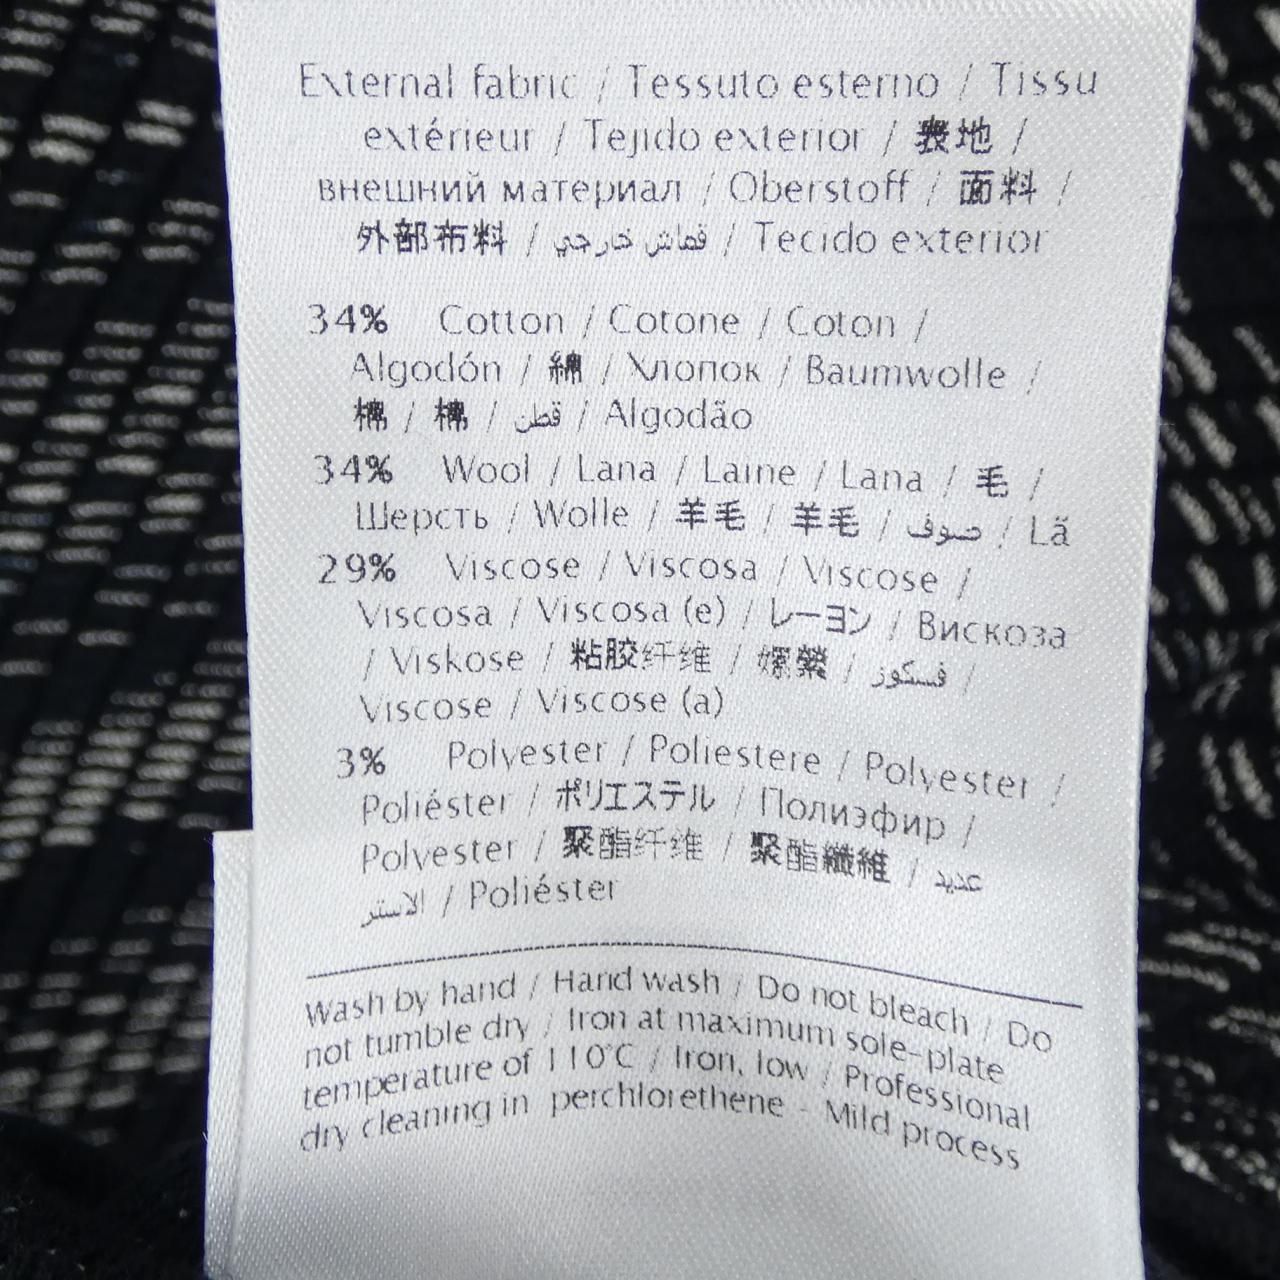 External fabric / Tessuto esterno / Tissu
extérieur / Tejido exterior / 表地 /
внешний материал / Oberstoff / 面料 /
外部布料 / قماش خارجي / Tecido exterior
34% Cotton / Cotone / Coton /
Algodón / 綿 / Хлопок / Baumwolle /
棉 / 棉 / قطن / Algodão
34% Wool / Lana / Laine / Lana / 毛 /
Шерсть / Wolle / 羊毛 / 羊毛 / صوف / Lã
29% Viscose / Viscosa / Viscose /
Viscosa / Viscosa (e) / レーヨン / Вискоза
/ Viskose / 粘胶纤维 / 嫘縈 / فسكوز /
Viscose / Viscose (a)
3% Polyester / Poliestere / Polyester /
Poliéster / ポリエステル / Полиэфир /
Polyester / 聚酯纤维 / 聚酯纖維 / عديد
الاستر / Poliéster
Wash by hand / Hand wash / Do not bleach / Do
not tumble dry / Iron at maximum sole-plate
temperature of 110°C / Iron, low / Professional
dry cleaning in perchlorethene - Mild process